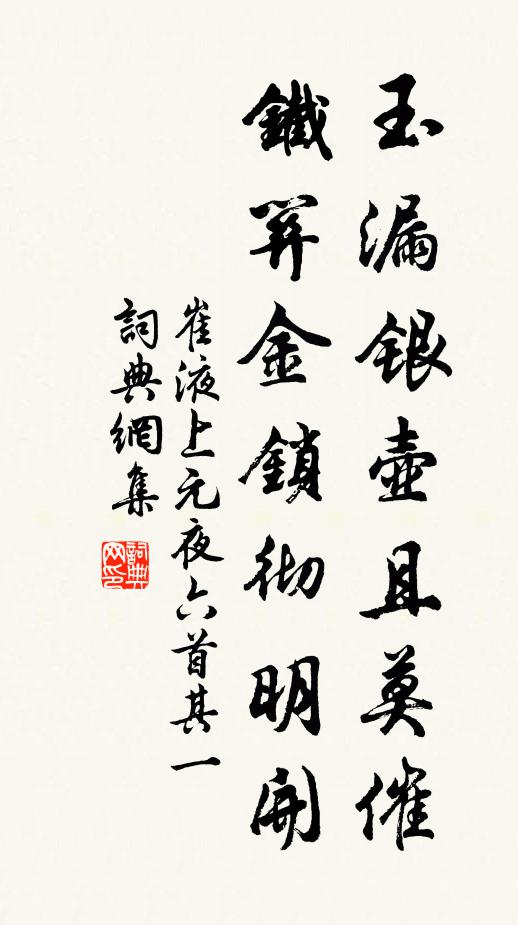 玉漏銀壺且莫催
鐵關金鎖彻明開
崔液上元夜六首其一
詞典網集
詞典网印